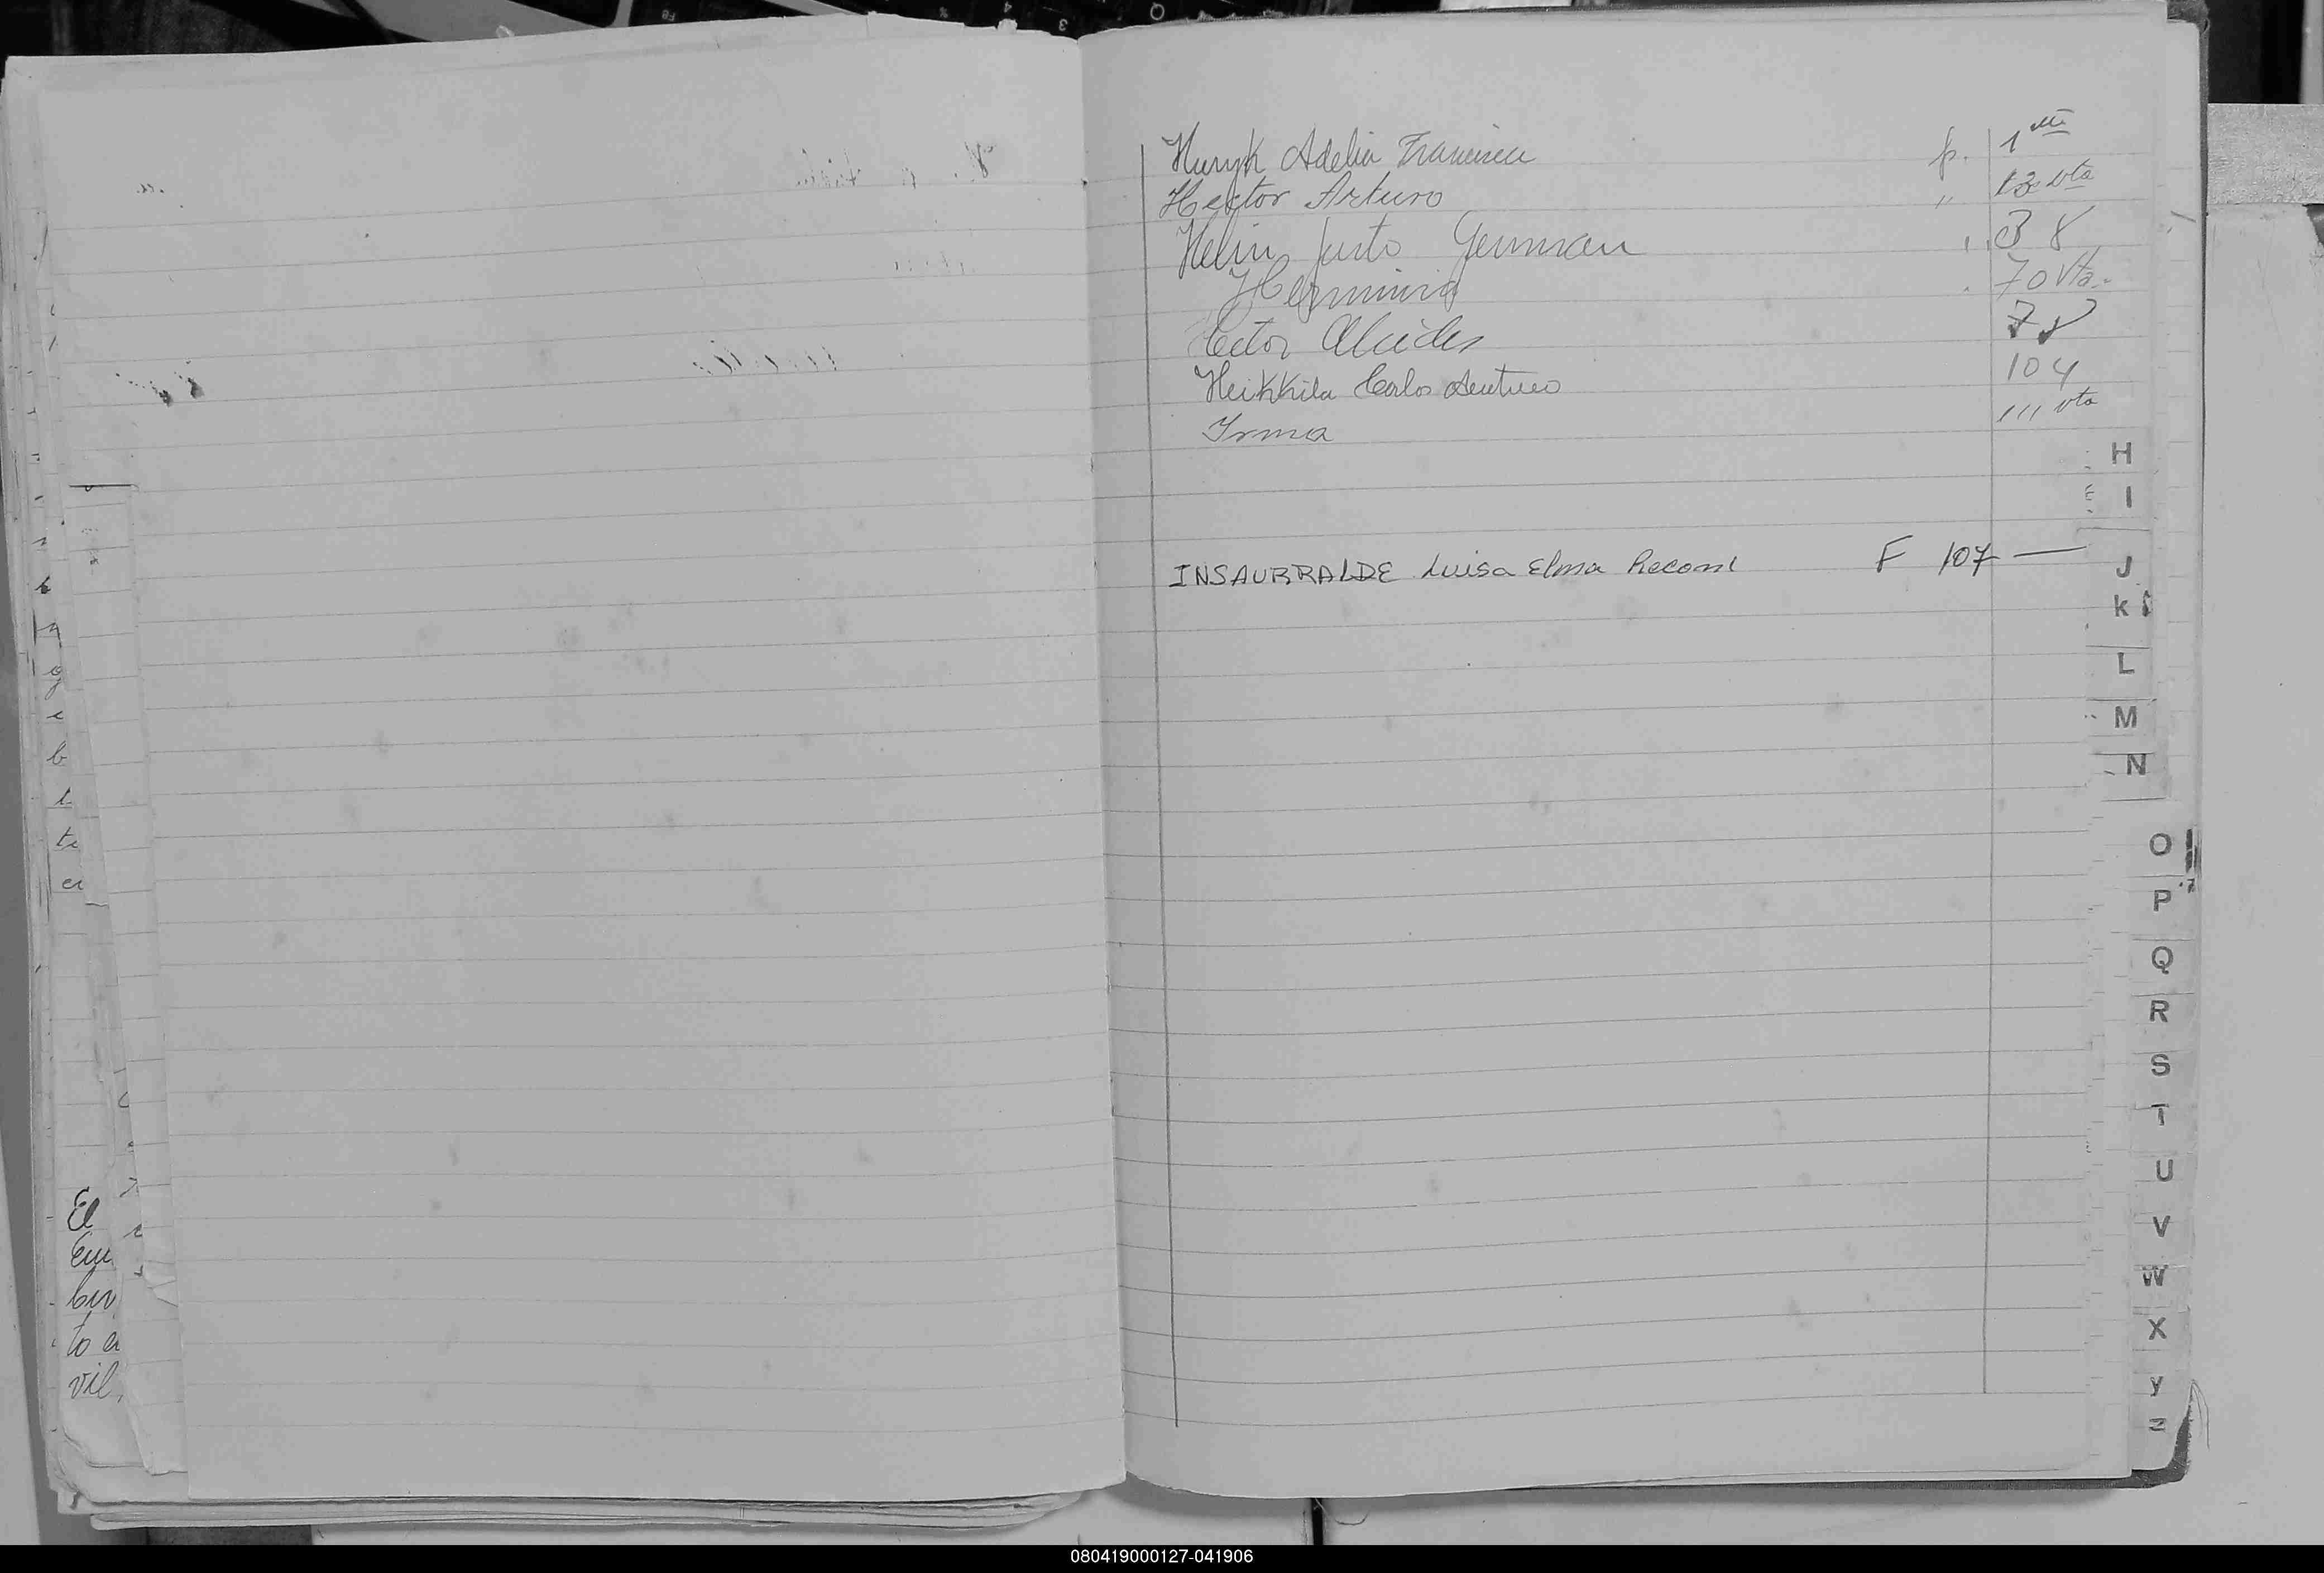 Huryk Adelia Francisca p. 1 vta
Hector Arturo " 13 vta
Helin Justo German " 38
Herminia 70 Vta.
Hector Alcides 78
Heikkila Carlos Arturo 104
Irma 111 vta
INSAURRALDE Luisa Elma Recon. F 107 —
H
I
J
k
L
M
N
O
P
Q
R
S
T
U
V
W
X
y
Z
El
Em
to a
vil,
080419000127-041906